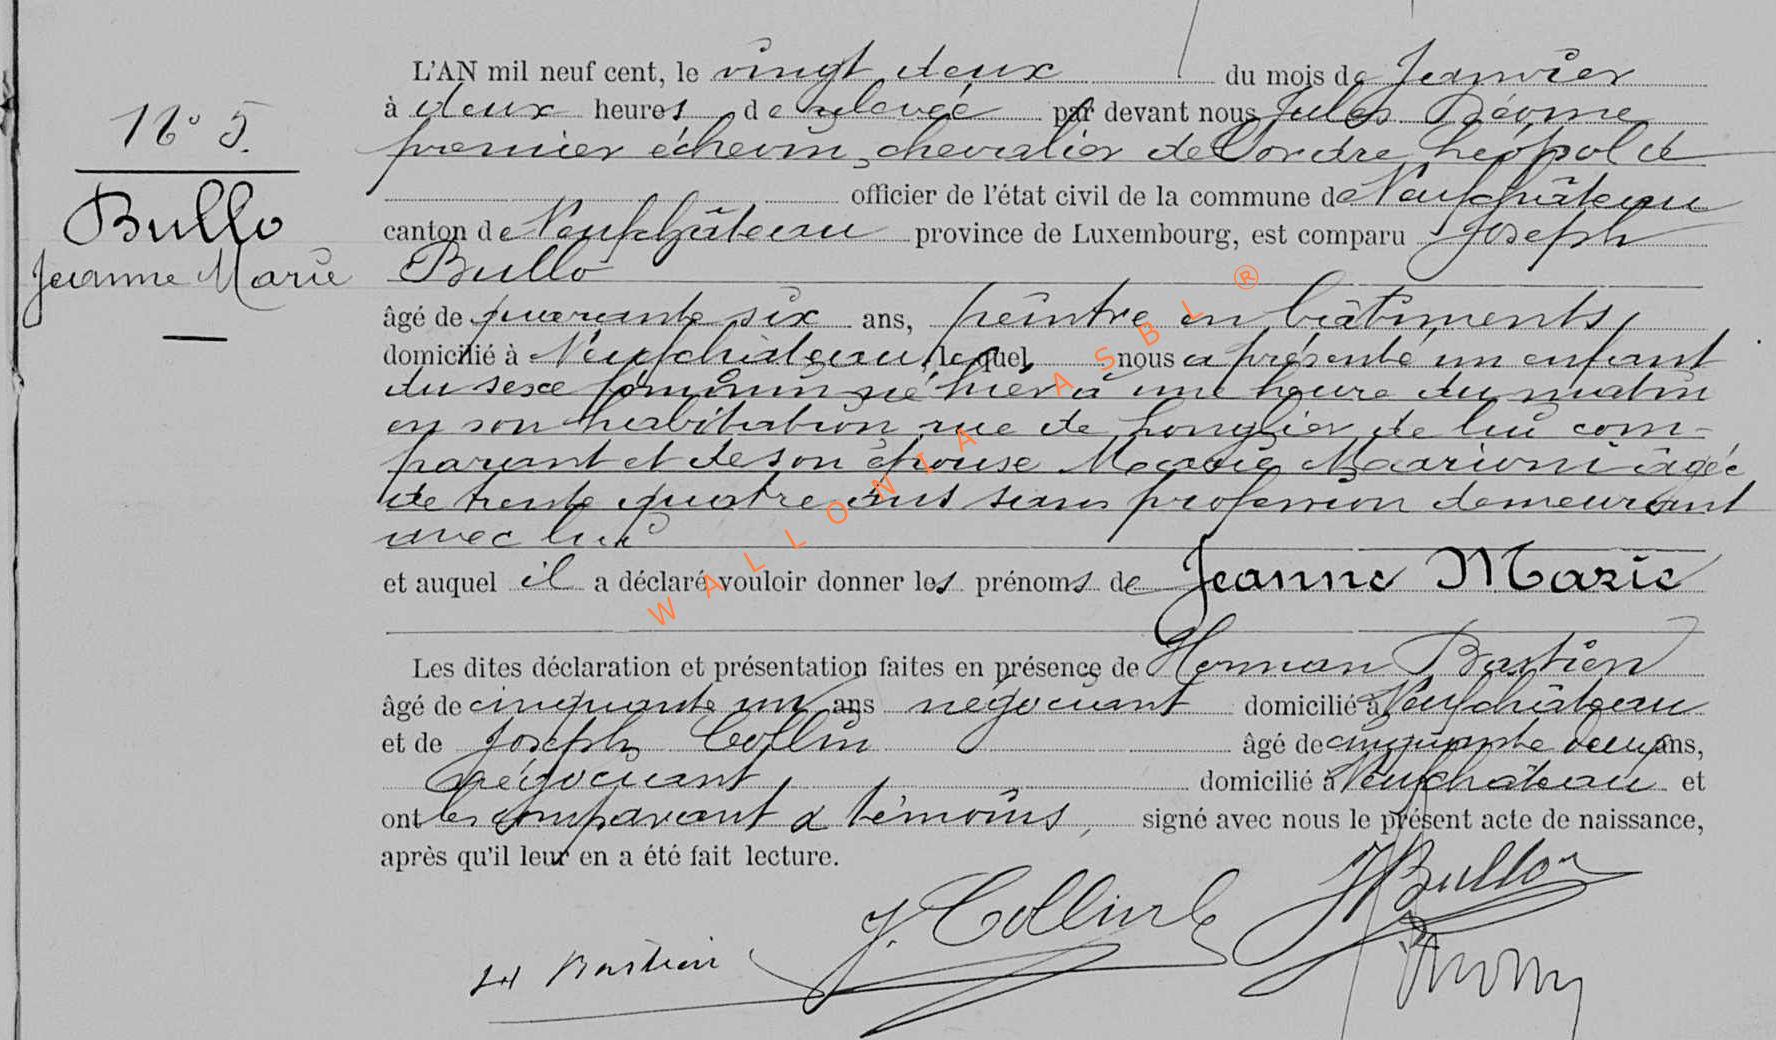 L'AN mil neuf cent, le vingt deux du mois de Janvier
à deux heures de relevée par devant nous Jules
premier échevin, chevalier de l'ordre Léopold
officier de l'état civil de la commune de Neufchâteau
N° 5.
Bullo
Jeanne Marie
canton de Neufchâteau province de Luxembourg, est comparu Joseph
Bullo
âgé de quarante six ans, peintre en bâtiments
domicilié à Neufchâteau, lequel nous a présenté un enfant
du sexe féminin né hier à une heure du matin
en son habitation rue de Longlier de lui com-
parant et de son épouse Maria âgée
de trente quatre ans sans profession demeurant
avec lui
et auquel il a déclaré vouloir donner les prénoms de Jeanne Marie
Les dites déclaration et présentation faites en présence de Herman Bastien
âgé de cinquante un ans négociant domicilié à Neufchâteau
et de Joseph Collin âgé de cinquante deux ans,
négociant domicilié à Neufchâteau et
ont les comparant & témoins, signé avec nous le présent acte de naissance,
après qu'il leur en a été fait lecture.
J Bullo
J. Collin
H Bastien
WALLONIA ASBL ®